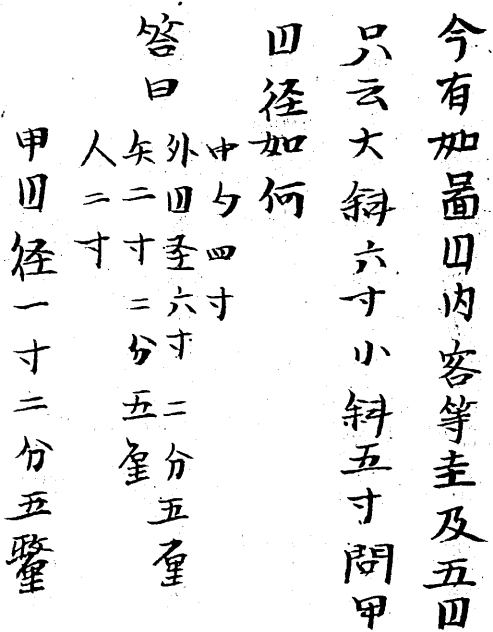 今有如啚円内容等圭及五円
只云大斜六寸小斜五寸問甲
円径如何
答曰
中勾四寸
外円圣六寸二分五厘
矢二寸二分五厘
人二寸
甲円径一寸二分五釐